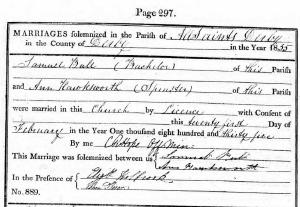 Page 297.
MARRIAGES solemnized in the Parish of All Saints Derby
in the County of Derby in the Year 1835
Samuel Ball (Bachelor) of this Parish
and Ann Hawksworth (Spinster) of this Parish
were married in this Church by Licence with Consent of
this twenty first Day of
February in the Year One thousand eight hundred and thirty five
By me
This Marriage was solemnized between us Samuel Ball
Ann Hawksworth
In the Presence of
No. 889.